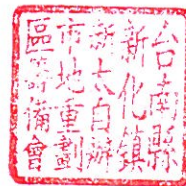 台南縣
新化鎮
新太自辦
市地重劃
區籌備會